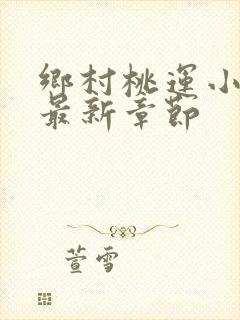 鄉村桃運小
最新章節
萱雪